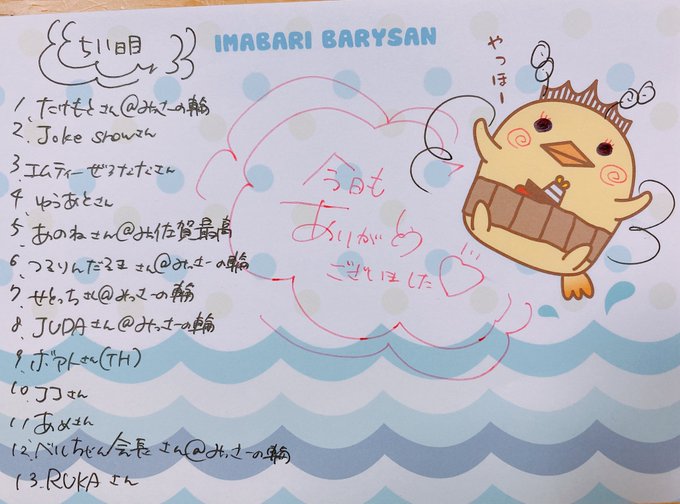 ちい日目
IMABARI BARYSAN
やっほー
1. たけもとさん@みっさーの輪
2. Joke showさん
3. エムティーぜろななさん
4. ゆうあとさん
5. あのねさん@み佐賀最高
6. つるりんだるまさん@みっさーの輪
7. せとっちさん@みっさーの輪
8. JUDAさん@みっさーの輪
9. ボアトさん(TH)
10. ココさん
11. あめさん
12. ベルちゃん会長さん@みっさーの輪
13. RUKAさん
今日も
ありがとう
ございました♡